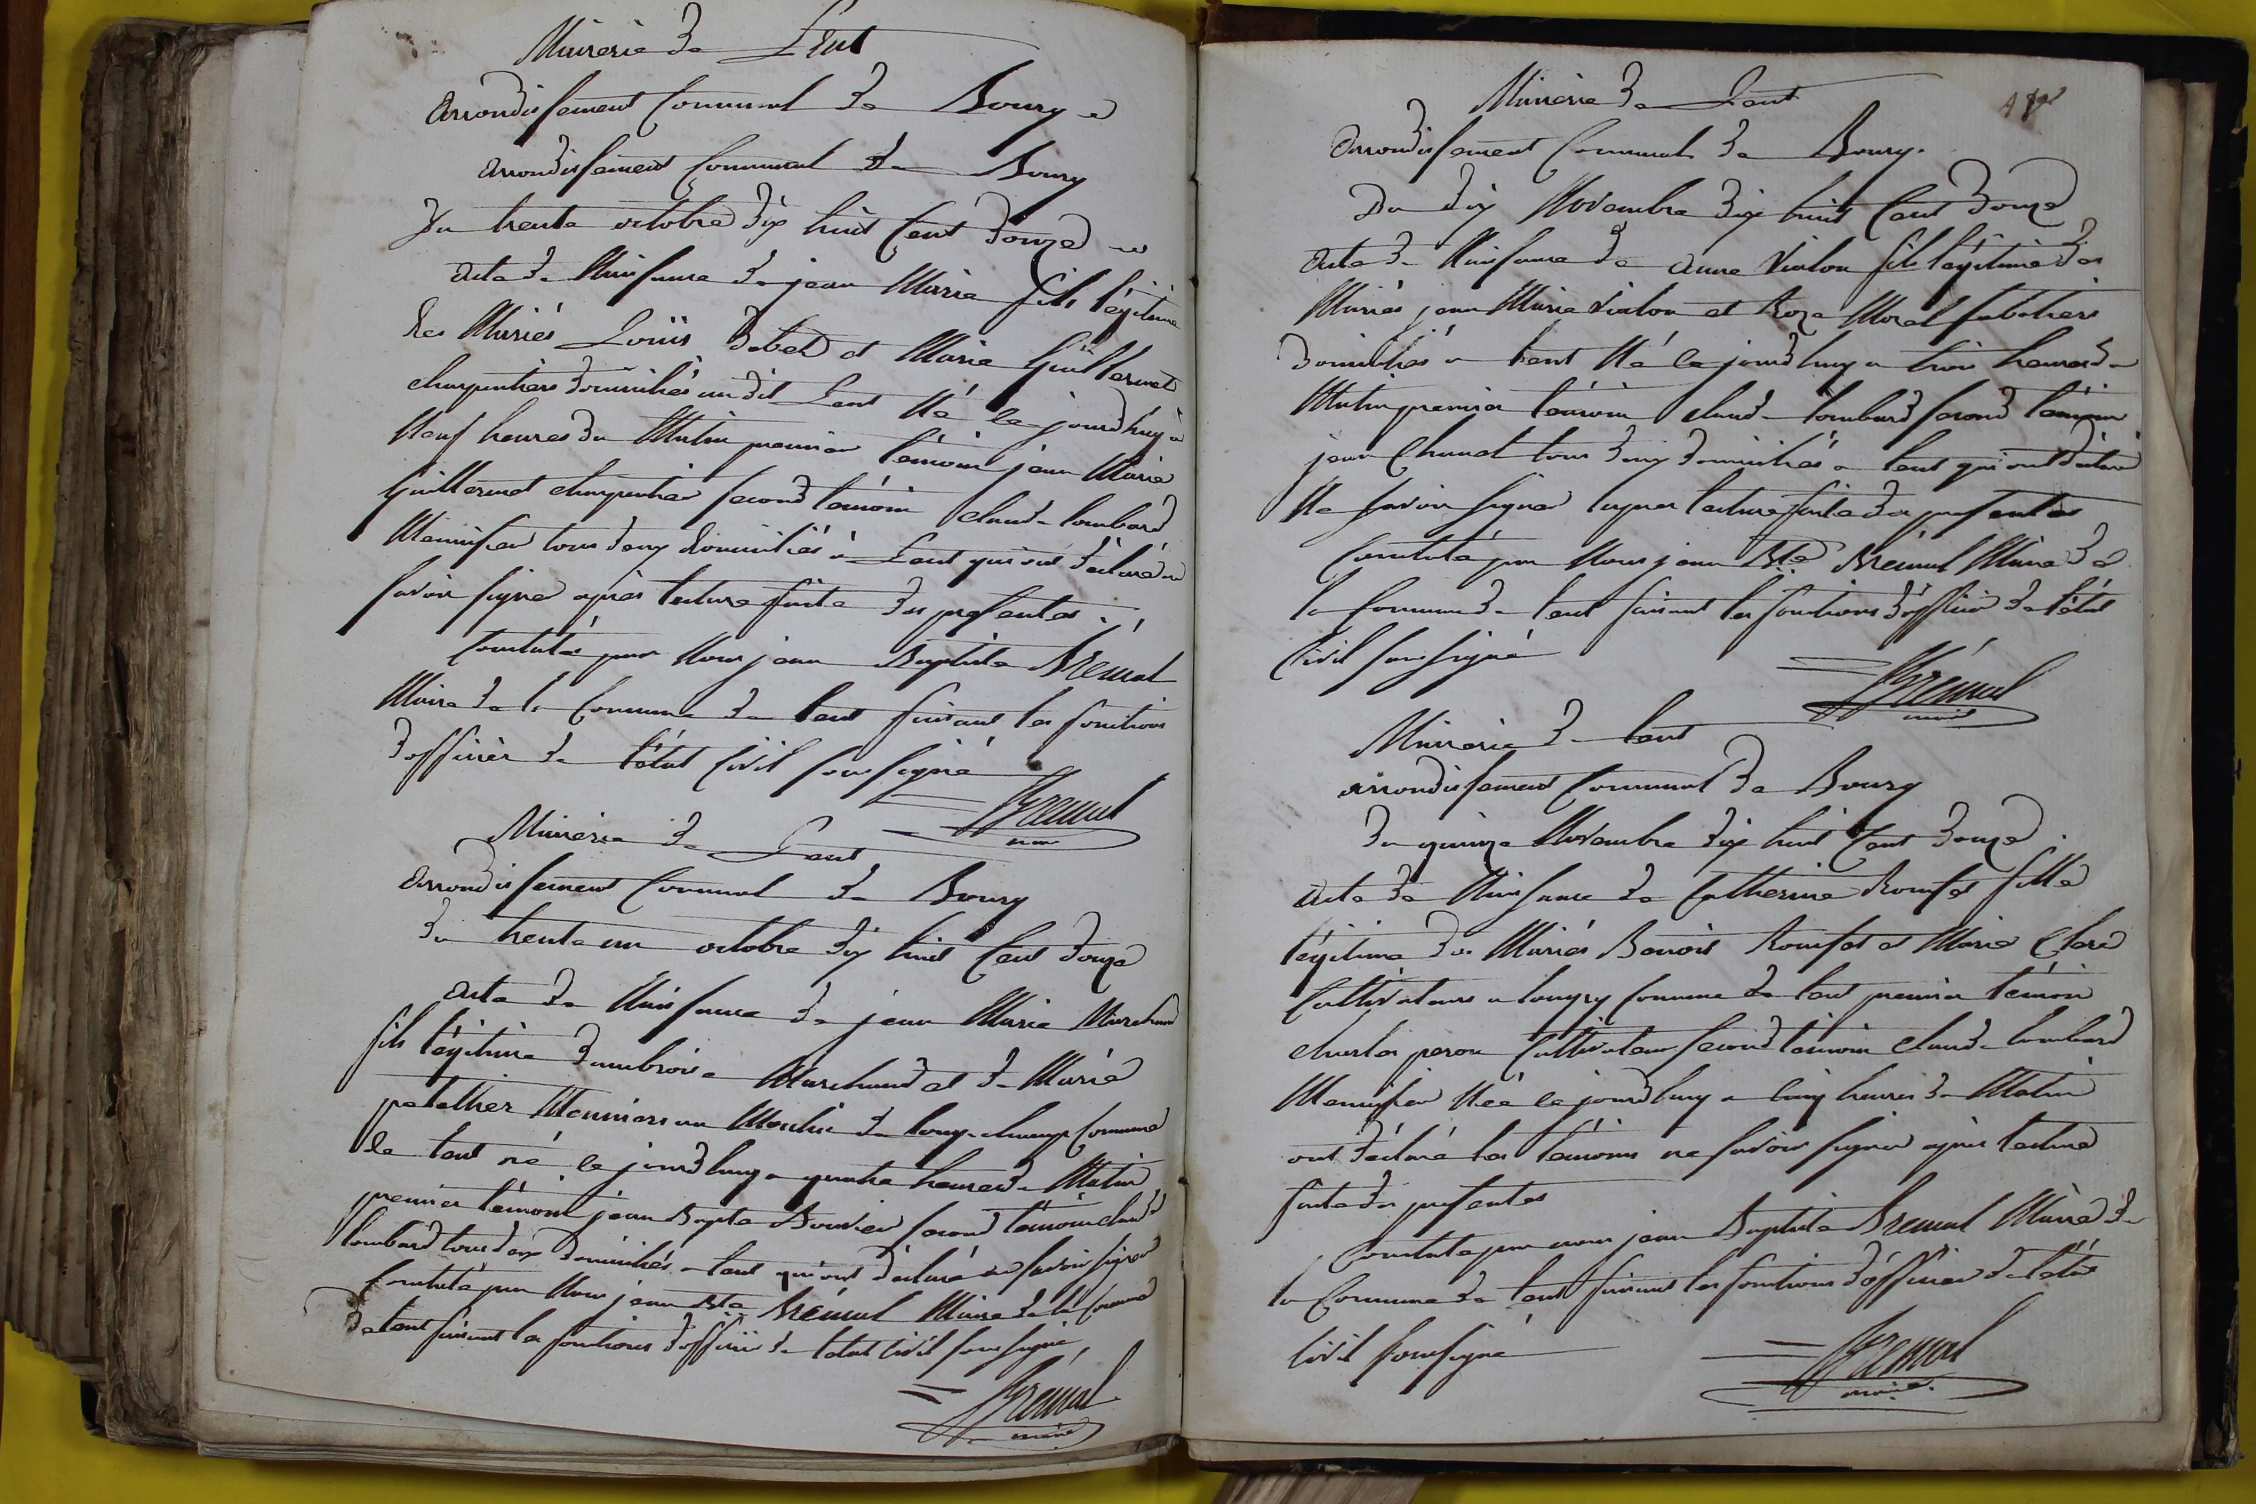 Mairerie de Lent
arrondissement Communal de Bourg
arrondissement Communal de Bourg
Du trente octobre dix huit Cent douze
acte de Naissance de jean Marie fils légitime
des Mariés Loüis debet et Marie Guillermet
charpentiers domiciliés au dit Lent Né ce jourdhuy à
Neuf heures du Matin premier témoin jean Marie
Guillermet charpentier second témoin claude lombard
Menuisier tous deux domiciliés à Lent qui ont déclaré ne
savoir signer après lecture faite des presentes.
Constaté par Nous jean Baptiste Brémal
Maire de la Commune de lent faisant les fonctions
d'officier de l'état Civil soussigné
Bremal
maire
Mairerie de Lent
arrondissement Communal de Bourg
du trente un octobre dix huit Cent douze
acte de Naissance de jean Marie Marchand
fils légitime d'ambroise Marchand et de Marie
patallier Meuniers au Moulin de longchamp Commune
de lent né ce jourdhuy a quatre heures du Matin
premier témoin jean Bapte Bouvier second témoin claude
lombard tous deux domiciliés a lent qui ont déclaré ne savoir signer
Constaté par Nous jean Bte Brémal Maire de la Commune
de lent faisant les fonctions d'officier de letat Civil soussigné,
Brémal
maire
Mairerie de Lent
arrondissement Communal de Bourg.
Du dix Novembre dix huit Cent douze
acte de Naissance de anne Vialon fils légitime des
Mariés jean Marie Vialon et Roze Morel sabotiers
domiciliés a lent Né ce jourdhuy a trois heures du
Matin premier témoin claude lombard second témoin
jean Chanel tous deux domiciliés a lent qui ont déclaré
Ne savoir signer lecture faite des presentes
Constaté par Nous jean Bte Brémal Maire de
la Commune de lent faisant les fonctions d'officier de l'état
Civil soussigné
Brémal
maire
Mairerie de lent
arrondissement Communal de Bourg
du quinze Novembre dix huit Cent douze.
acte de Naissance de Catherine Rousset fille
légitime des Mariés Benoit Rousset et Marie Clerc
Cultivateurs a longry Commune de lent premier témoin
charles peron Cultivateur second témoin claude lombard
Menuisier Née ce jourdhuy a cinq heures du Matin
ont déclaré les témoins ne savoir signer après lecture
faite des presentes
Constaté par nous jean Baptiste Bremal Maire de
la Commune de lent faisant les fonctions d'officier de l'état
Civil soussigné
Bremal
maire